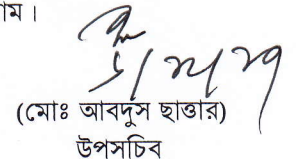 াম।
(মোঃ আবদুস ছাত্তার)
উপসচিব